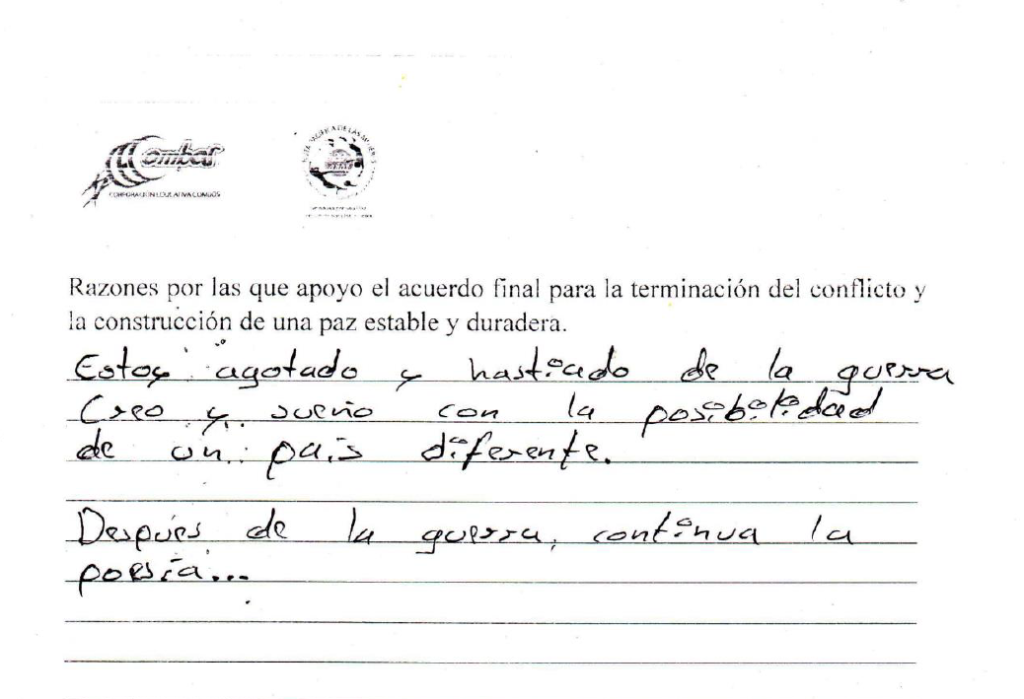 Combos
CORPORACIÓN EDUCATIVA COMBOS
Razones por las que apoyo el acuerdo final para la terminación del conflicto y
la construcción de una paz estable y duradera.
Estoy agotado y hastiado de la guerra
Creo y sueño con la posibilidad
de un país diferente.
Después de la guerra, continua la
poesía...